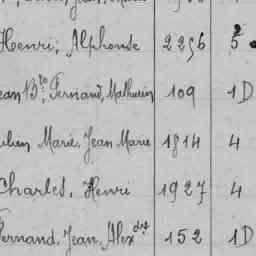 Henri, Alphonse 2296 5
Jean Bte, Fernand, Mathurin 109 1D
Julien Marie, Jean Marie 1814 4
Charles, Henri 1927 4
Fernand, Jean, Alexdre 152 1D